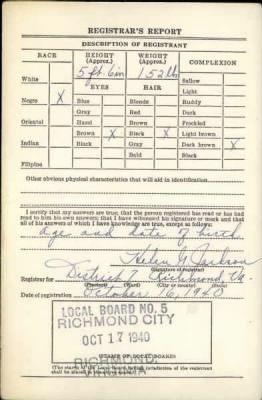 REGISTRAR'S REPORT
DESCRIPTION OF REGISTRANT
RACE HEIGHT (Approx.) WEIGHT (Approx.) COMPLEXION
5 ft. 6 in 152 lb
White Sallow
EYES HAIR Light
Negro X Blue Blonde Ruddy
Gray Red Dark
Oriental Hazel Brown Freckled
Brown X Black X Light brown
Indian Black Gray Dark brown X
Bald Black
Filipino
Other obvious physical characteristics that will aid in identification
I certify that my answers are true; that the person registered has read or has had
read to him his own answers; that I have witnessed his signature or mark and that
all of his answers of which I have knowledge are true, except as follows:
age and date of birth
Helen G. Jackson
(Signature of registrar)
Registrar for District 7 Richmond, Va.
(Precinct) (Ward) (City or county) (State)
Date of registration October 16, 1940
LOCAL BOARD NO. 5
RICHMOND CITY
OCT 17 1940
RICHMOND,
VIRGINIA
(STAMP OF LOCAL BOARD)
(The stamp of the Local Board having jurisdiction of the registrant
shall be placed in the above space.)